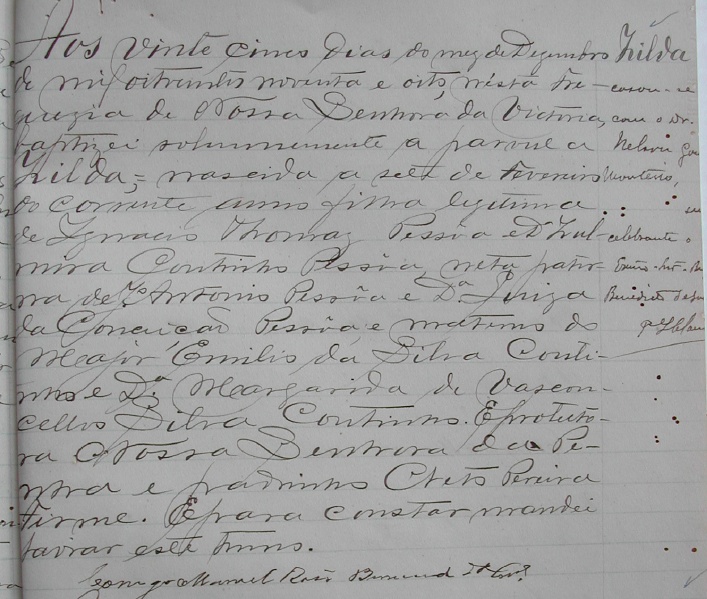 Aos vinte cinco dias do mez de Dezembro
de mil oitocentos noventa e oito, nesta fre-
guezia de Nossa Senhora da Victoria,
baptizei solemnemente a parvula
Zilda, = nascida a sete de Fevereiro
do corrente anno filha legitima
de Ignacio Thomaz Pessôa e Dª Zul-
mira Coutinho Pessôa, neta pater-
na de Antonio Pessôa e Dª Luiza
da Conceição Pessôa e materna do
Major Emilio da Silva Couti-
nho e Dª Margarida de Vascon-
cellos Silva Coutinho. É protecto-
ra Nossa Senhora da Pe-
nha e padrinho Cleto Pereira
Firme. E para constar mandei
lavrar este termo.
Conego Manoel
Zilda
casou-se
com o Dr.
Nelson
Monteiro,
celebrante o
Exmo.
Benedicto